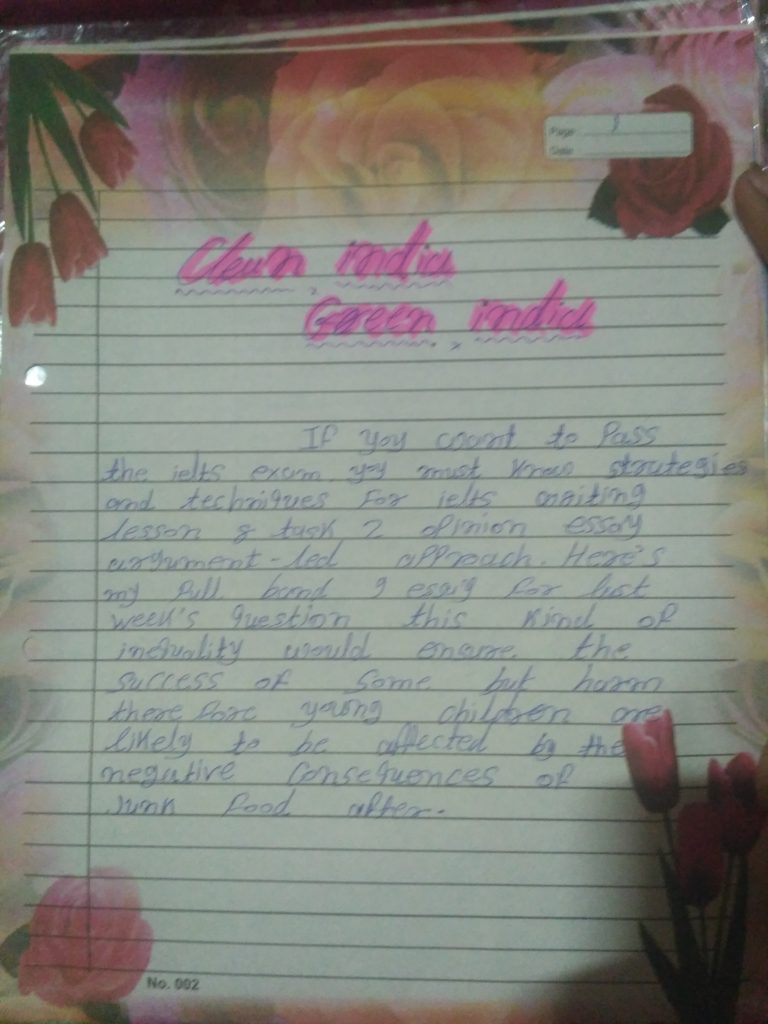 Page 1
Date
Clean india
Green india
If you want to Pass
the ielts exam you must know strategies
and techniques for ielts writing
lesson & task 2 opinion essay
argument-led approach. Here's
my full band 9 essay for last
week's question this kind of
inequality would ensure the
success of some but harm
there fore young children are
likely to be affected by the
negative consequences of
Junk food after.
No. 002